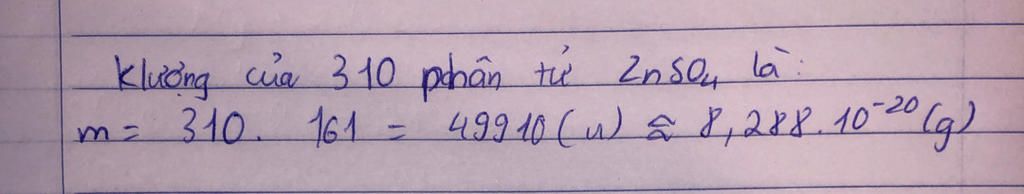 Klượng của 310 phân tử ZnSO₄ là:
m = 310. 161 = 49910 (u) ≈ 8,288.10⁻²⁰ (g)